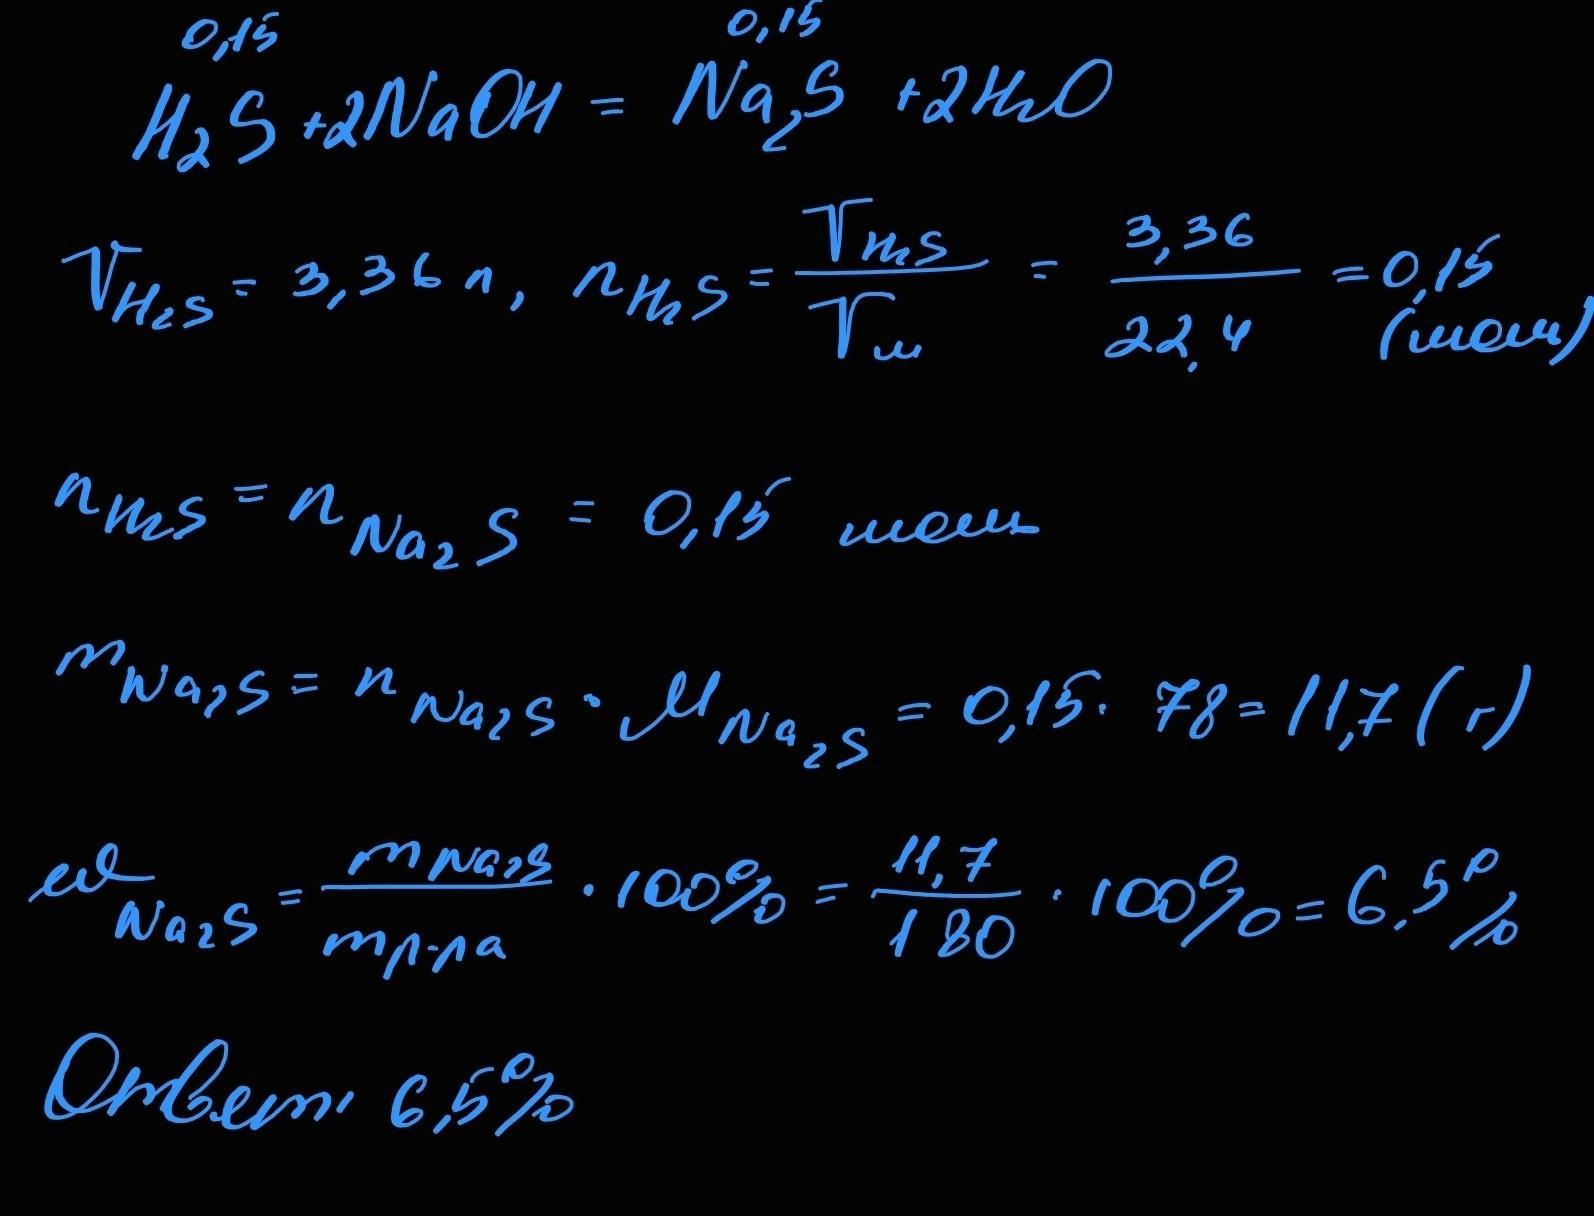 0,15 0,15
H₂S + 2NaOH = Na₂S + 2H₂O
V_H₂S = 3,36 л, n_H₂S = V_H₂S / V_м = 3,36 / 22,4 = 0,15 (моль)
n_H₂S = n_Na₂S = 0,15 моль
m_Na₂S = n_Na₂S · M_Na₂S = 0,15 · 78 = 11,7 (г)
ω_Na₂S = m_Na₂S / m_р-ра · 100% = 11,7 / 180 · 100% = 6,5%
Ответ: 6,5%